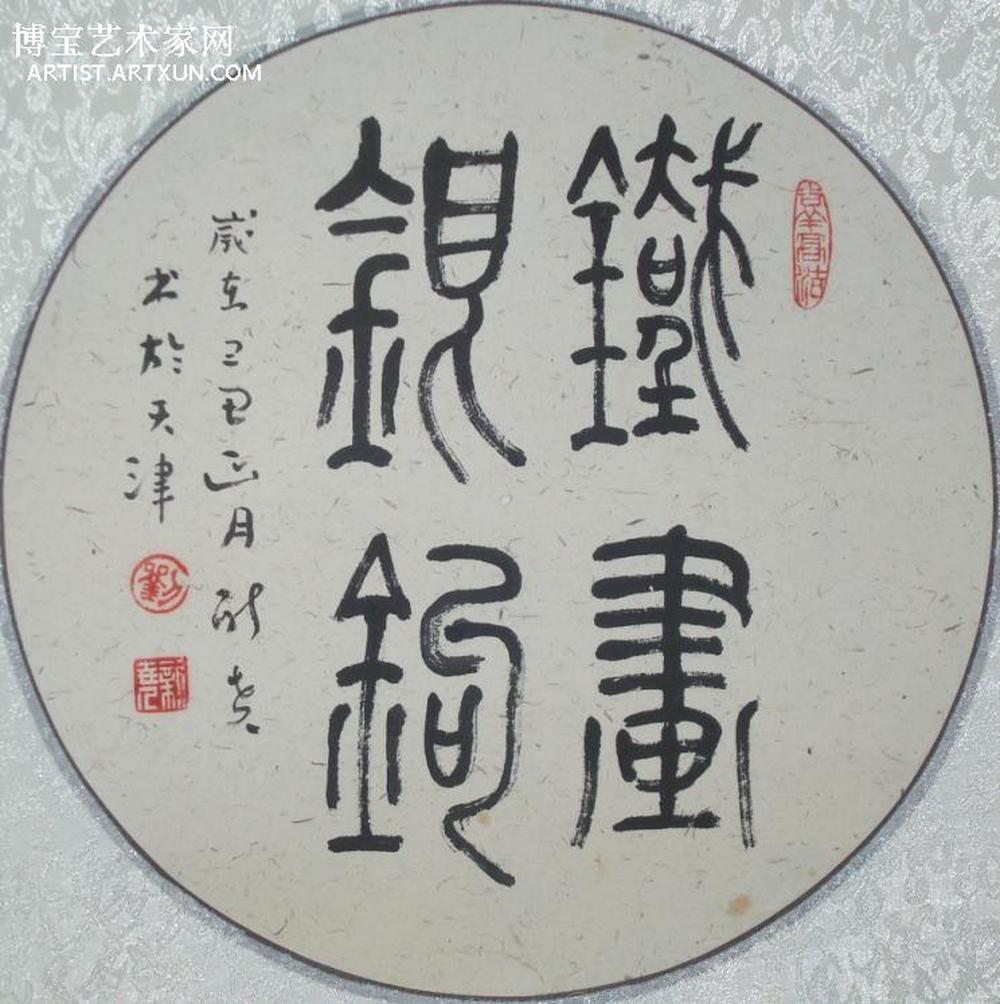 博宝艺术家网
ARTIST.ARTXUN.COM
鐵畫
銀鉤
歲在己丑正月新堯
书於天津